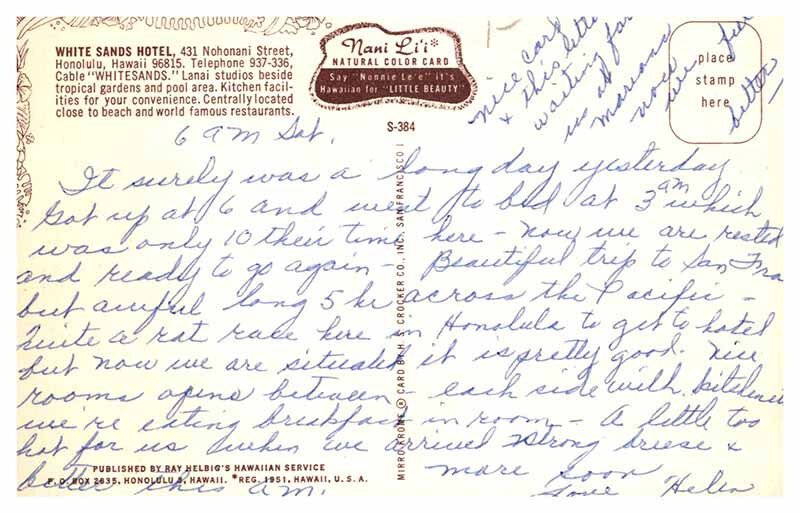 WHITE SANDS HOTEL, 431 Nohonani Street,
Honolulu, Hawaii 96815. Telephone 937-336,
Cable "WHITESANDS." Lanai studios beside
tropical gardens and pool area. Kitchen facil-
ities for your convenience. Centrally located
close to beach and world famous restaurants.
Nani Li'i*
NATURAL COLOR CARD
Say "Nonnie Le'e" it's
Hawaiian for "LITTLE BEAUTY"
S-384
place
stamp
here
nice card
& this letter
waiting for
us at
Marions
now we
better
6 AM Sat.
It surely was a long day yesterday
Got up at 6 and went to bed at 3 AM which
was only 10 their time here - now we are rested
and ready to go again - Beautiful trip to San Fra
but awful long 5 hr across the Pacific -
Quite a rat race here in Honolulu to get to hotel
but now we are situated it is pretty good. Nice
rooms opens between - each side with kitchenie
we're eating breakfast in room - A little too
hot for us when we arrived strong breese &
better this AM.
more soon
Love Helen
PUBLISHED BY RAY HELBIG'S HAWAIIAN SERVICE
P.O. BOX 2835, HONOLULU 3, HAWAII. *REG. 1951, HAWAII, U.S.A.
MIRRO-KROME ® CARD BY H. S. CROCKER CO., INC. SAN FRANCISCO 1